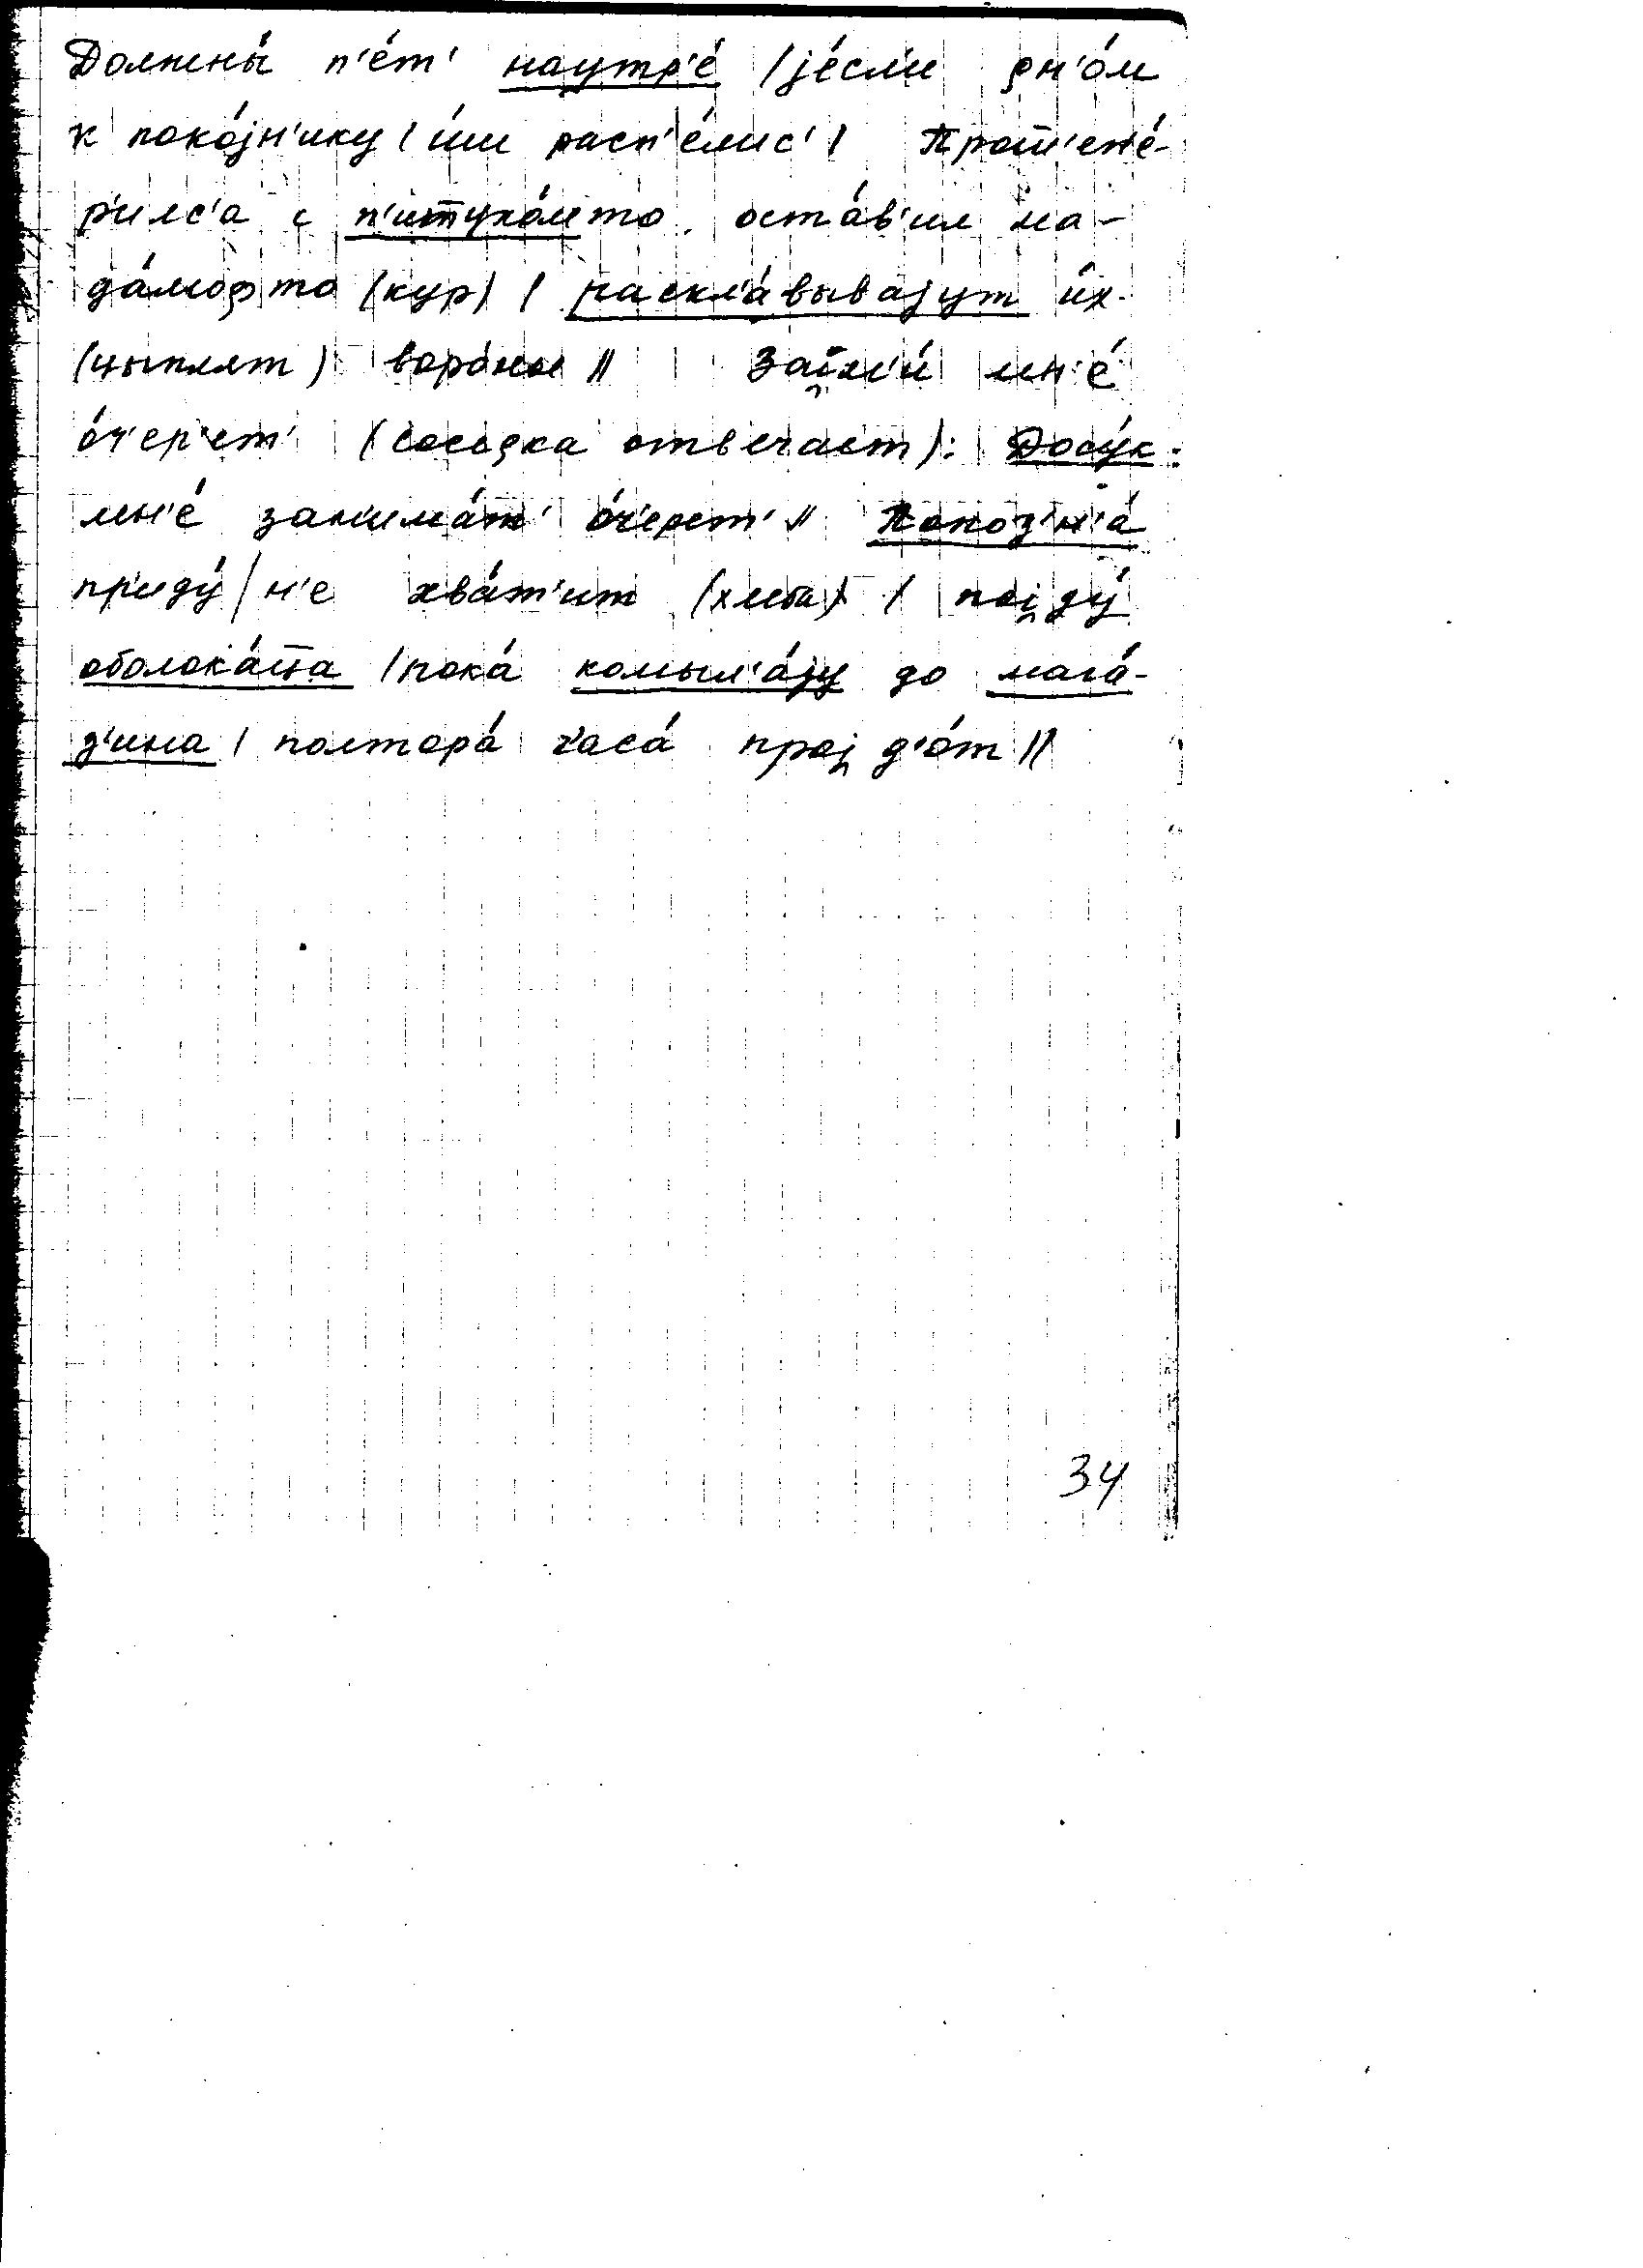 Должны́ п'е́т' наутр'е́ /jе́сл'и дн'о́м
к поко́jн'ику / и́ли расп'е́лис' / 
р'илс'а с п'итухо́мто оста́в'ил ма-
да́модто (кур) / раскл'а́вываjут и́х
(цыплят) воро́ны // Займ'и́ мн'е́
о́ч'ер'ет' (соседка отвечает): Досу́к
мн'е́ зан'има́т' о́ч'ер'ет' // Попоз'н'а́
пр'иду́ / н'е хва́т'ит (хлеба) / поjду́
оболока́ца / пока́ комыл'а́jу до мага́-
з'ина / полтора́ часа́ проjд'о́т //
34